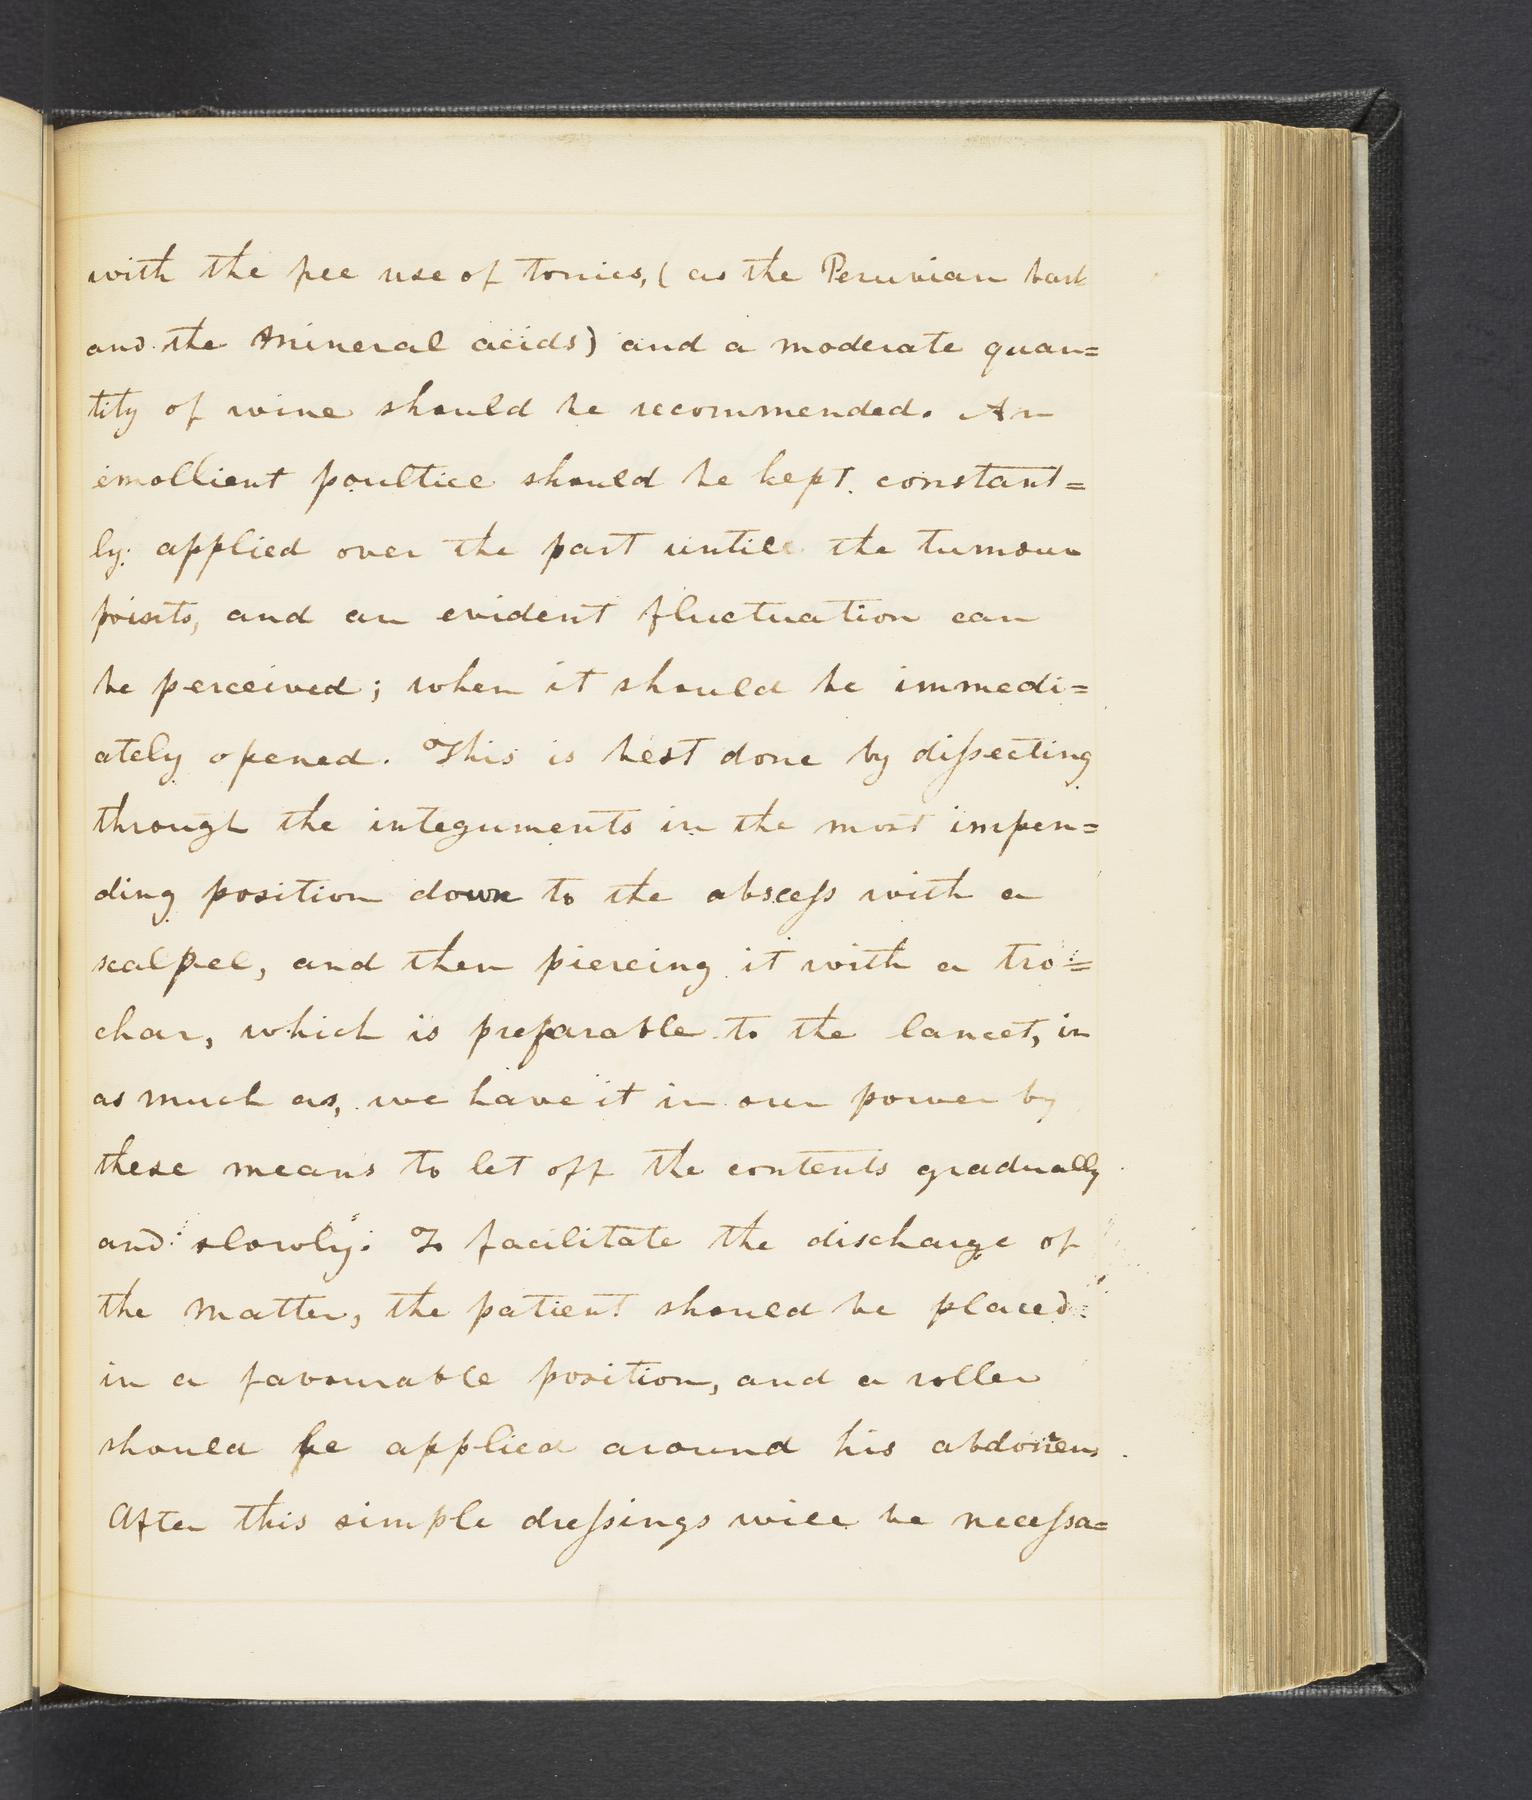 with the free use of tonics, (as the Peruvian bark
and the mineral acids) and a moderate quan=
tity of wine should be recommended. An
emollient poultice should be kept constant=
ly applied over the part untill the tumour
points, and an evident fluctuation can
be perceived; when it should be immedi=
ately opened. This is best done by dissecting
through the integuments in the most impen=
ding position down to the abscess with a
scalpel, and then piercing it with a tro=
char, which is preferable to the lancet, in
as much as, we have it in our power by
these means to let off the contents gradually
and slowly. To facilitate the discharge of
the matter, the patient should be placed
in a favourable position, and a roller
should be applied around his abdomen.
After this simple dressings will be necessa=